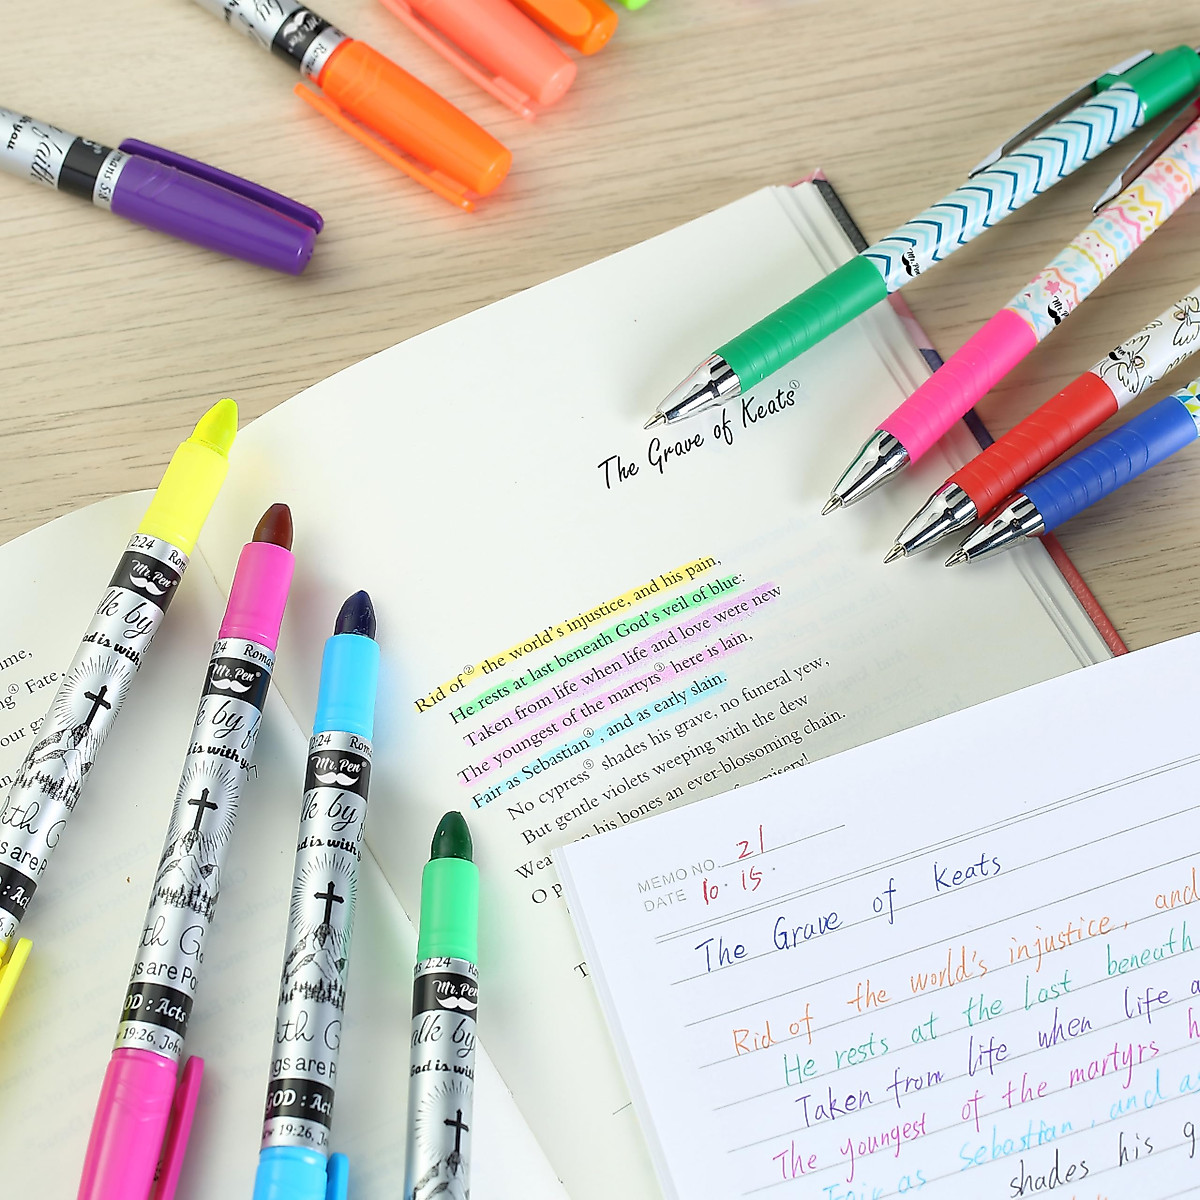 The Grave of Keats①
Rid of② the world's injustice, and his pain,
He rests at last beneath God's veil of blue:
Taken from life when life and love were new
The youngest of the martyrs③ here is lain,
Fair as Sebastian④, and as early slain.
No cypress⑤ shades his grave, no funeral yew,
But gentle violets weeping with the dew
his bones an ever-blossoming chain.
misery!
O
ime,
④ Fate,
our
MEMO NO. 21
DATE 10.15
The Grave of Keats
Rid of the world's injustice, and
He rests at the last beneath
Taken from life when life
The youngest of the martyrs
Fair as Sebastian, and as
shades his
Mr. Pen
2:24
Mr. Pen®
lk by
God is with
ith
gs are
: Act
24
Mr. Pen®
k by
d is with y
th G
gs are Po
OD : Acts
19:26, Joh
2:24
Mr. Pen®
lk by
od is with y
th G
ngs are P
GOD : Act
w 19:26, Jo
2:24
Mr. Pen
alk by
God is with
Faith
h you
mans 5:8
Mr. Pen
Mr. Pen